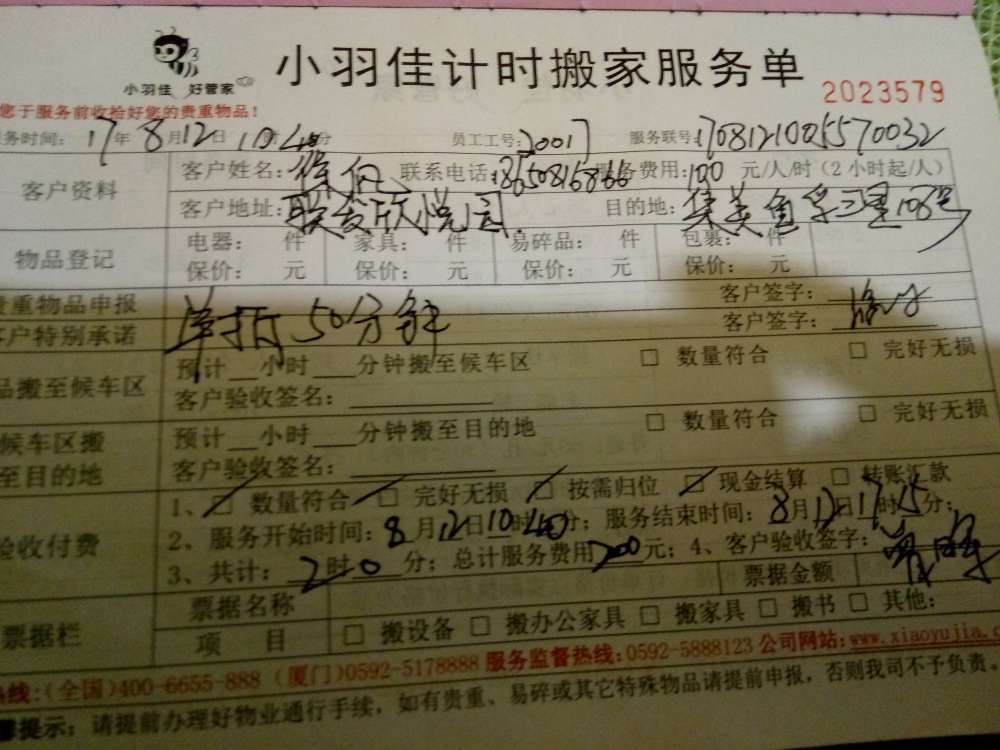 小羽佳 好管家
小羽佳计时搬家服务单
2023579
您于服务前收拾好您的贵重物品!
务时间: 17年8月12日10时40分 员工工号: 20017 服务联号: 1708121005570032
客户资料
客户姓名: 徐 联系电话: 费用: 100 元/人/时 (2小时起/人)
客户地址: 联发欣悦园 目的地: 集美鱼孚三里108号
物品登记
电器: 件 家具: 件 易碎品: 件 包裹: 件
保价: 元 保价: 元 保价: 元 保价: 元
贵重物品申报 客户签字:
客户特别承诺 单拆50分钟 客户签字:
品搬至候车区
预计__小时___分钟搬至候车区 □ 数量符合 □ 完好无损
客户验收签名:
候车区搬
至目的地
预计__小时___分钟搬至目的地 □ 数量符合 □ 完好无损
客户验收签名:
验收付费
1、□ 数量符合 □ 完好无损 □ 按需归位 □ 现金结算 □ 转账汇款
2、服务开始时间: 8月12日10时40分; 服务结束时间: 8月12日17时15分;
3、共计: 2时0分; 总计服务费用200元; 4、客户验收签字:
票据栏
票据名称 票据金额
项 目 □ 搬设备 □ 搬办公家具 □ 搬家具 □ 搬书 □ 其他:
热线: (全国)400-6655-888 (厦门)0592-5178888 服务监督热线: 0592-5888123 公司网站: www.xiaoyujia.
提示: 请提前办理好物业通行手续, 如有贵重、易碎或其它特殊物品请提前申报, 否则我司不予负责。